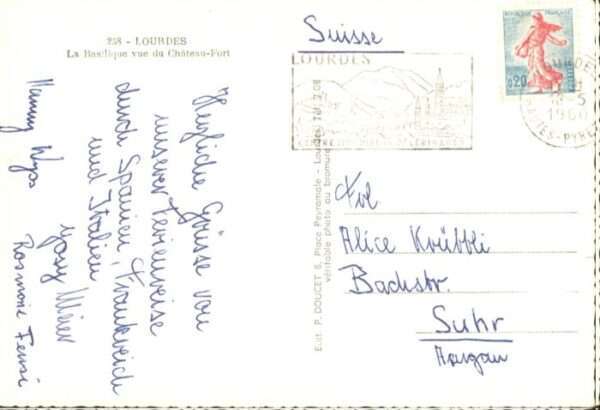 228 - LOURDES
La Basilique vue du Château-Fort
Herzliche Grüsse von
unserer Ferienreise
durch Spanien, Frankreich
und Italien
Rosmarie
Suisse
LOURDES
RÉPUBLIQUE FRANÇAISE
0,20
1960
Edit. P. DOUCET 8, Place Peyramale - Lourdes Tél. 2.08
véritable photo au bromure
Frl
Alice Krübbli
Bachstr.
Suhr
Aargau